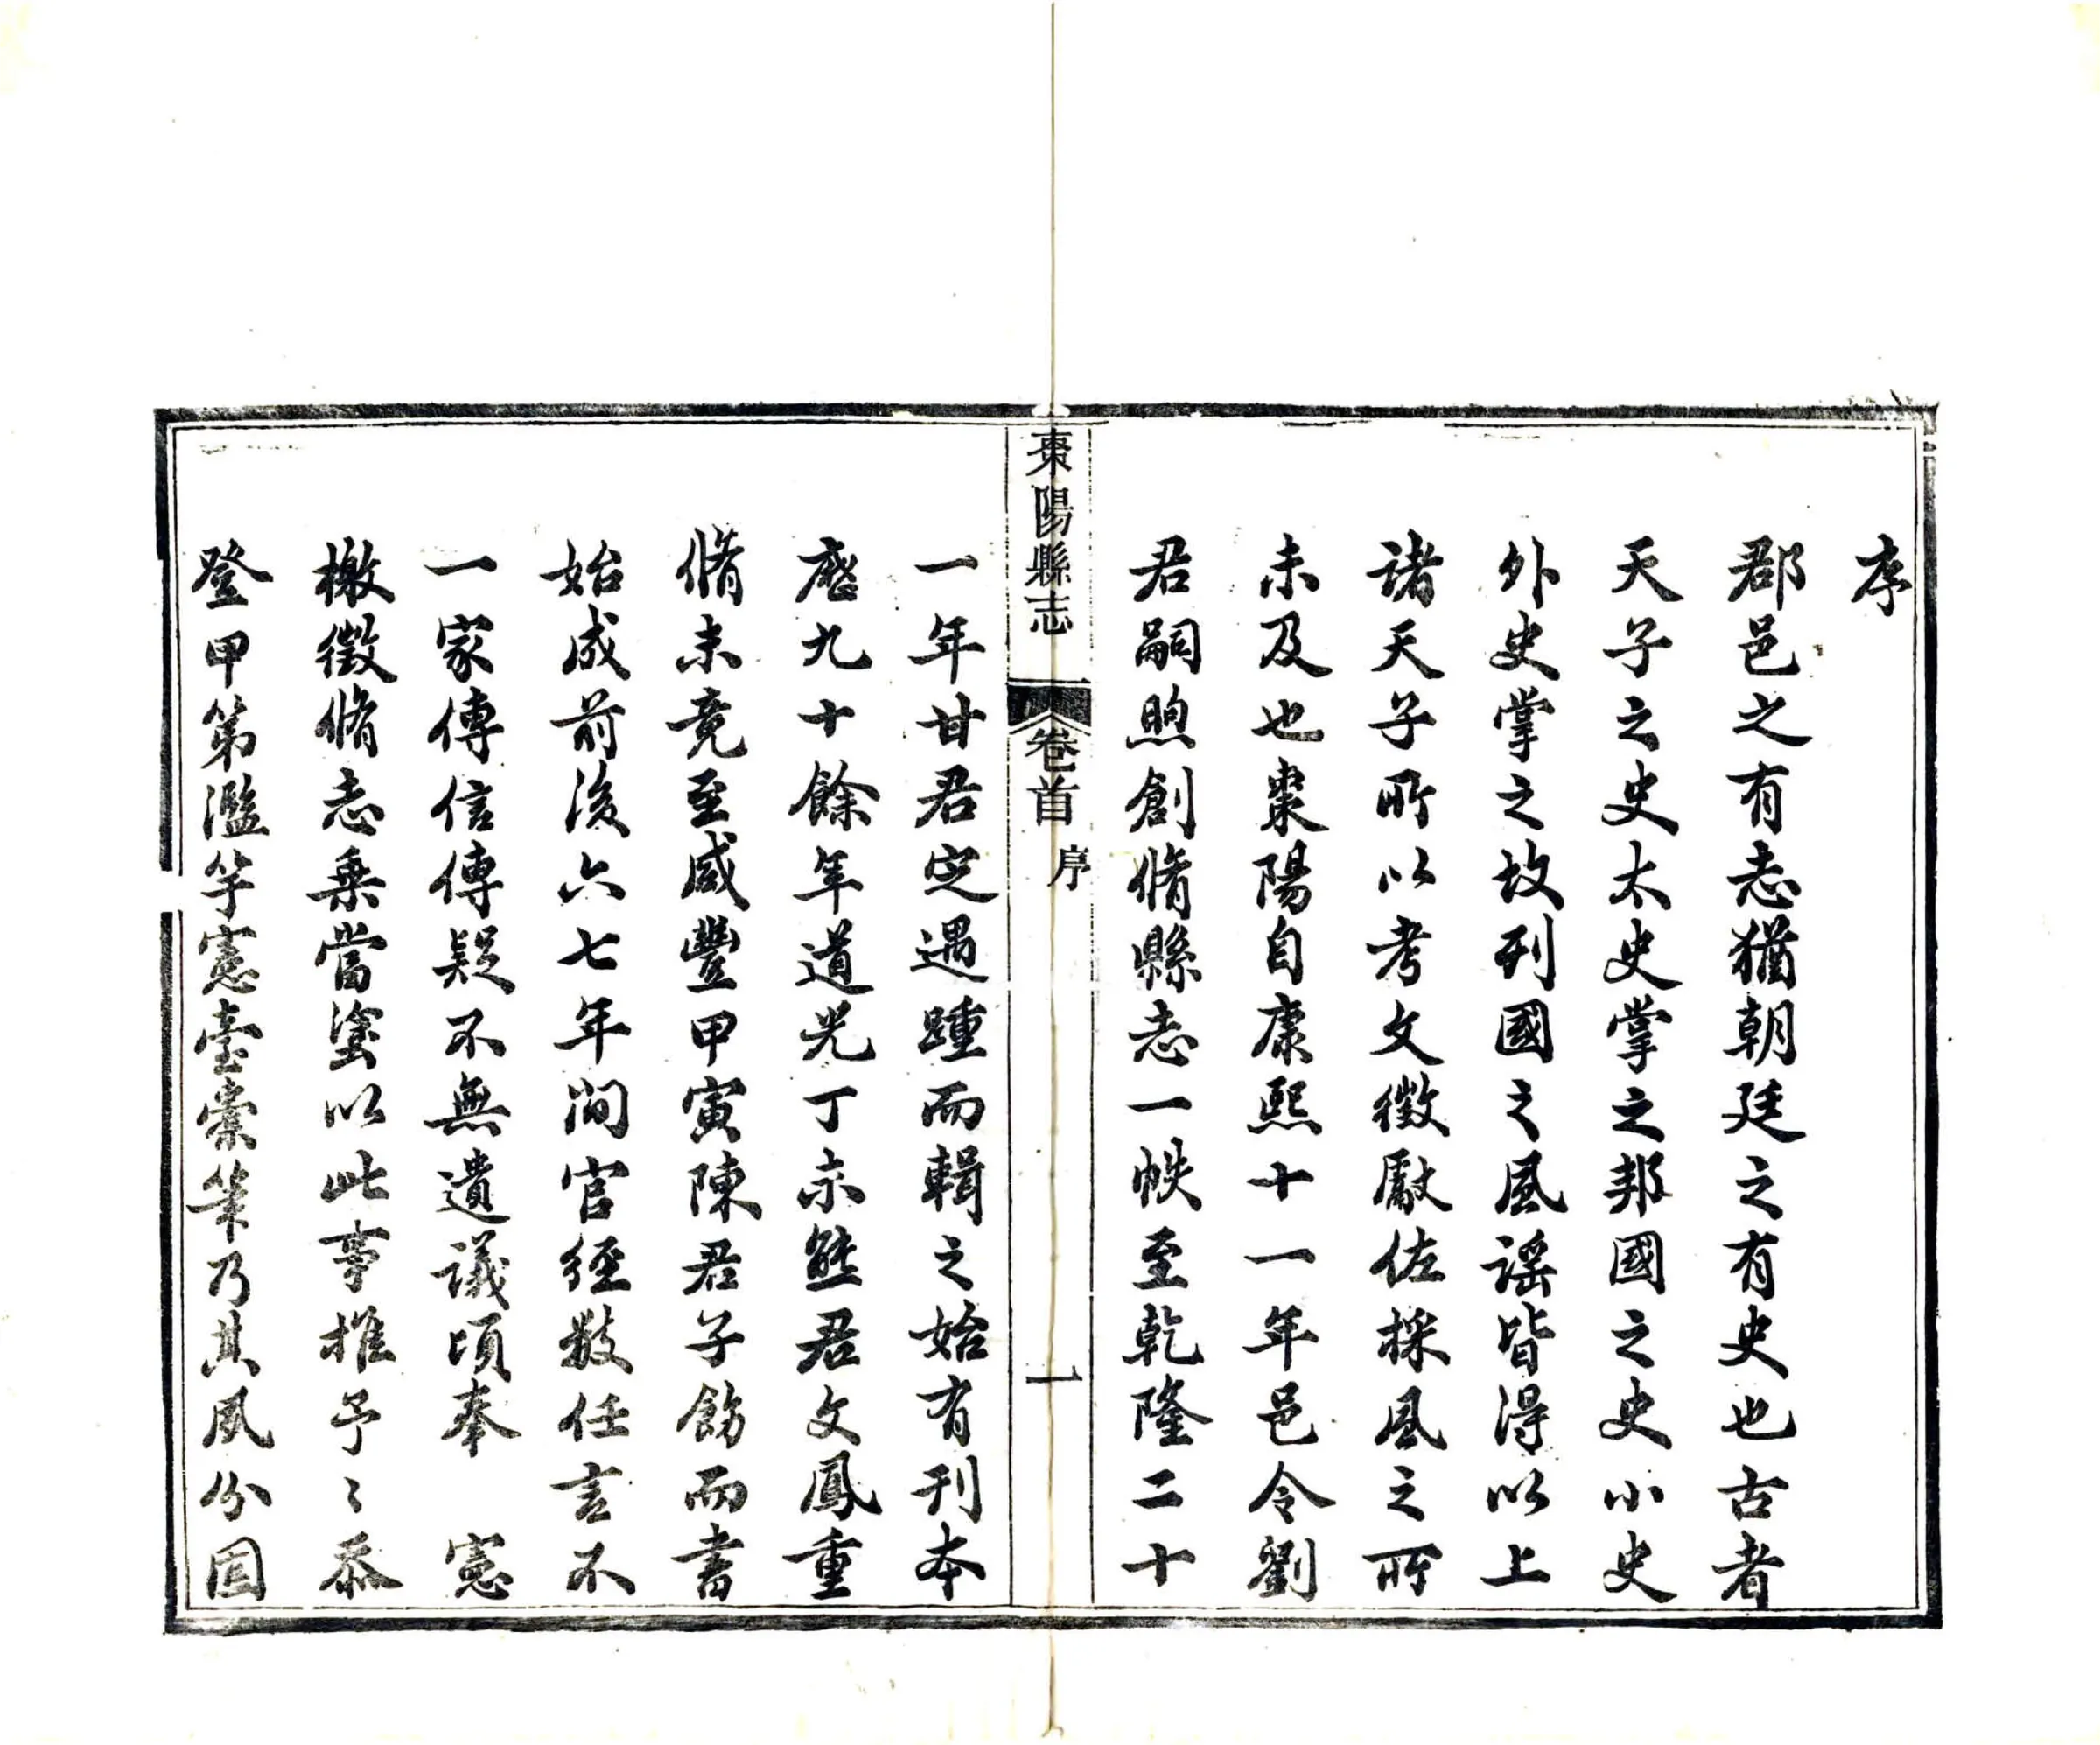 序
郡邑之有志猶朝廷之有史也古者
天子之史太史掌之邦國之史小史
外史掌之故列國之風謠皆得以上
諸天子所以考文徵獻佐採風之所
未及也棗陽自康熙十一年邑令劉
君嗣煦創脩縣志一帙至乾隆二十
棗陽縣志
卷首
序
一
一年甘君定遇踵而輯之始有刊本
歷九十餘年道光丁未熊君文鳳重
脩未竟至咸豐甲寅陳君子飭而書
始成前後六七年間官經數任言不
一家傳信傳疑不無遺議頃奉 憲
檄徵脩志乘當塗以此事推予〻忝
登甲第濫竽憲臺橐筆乃其夙分固